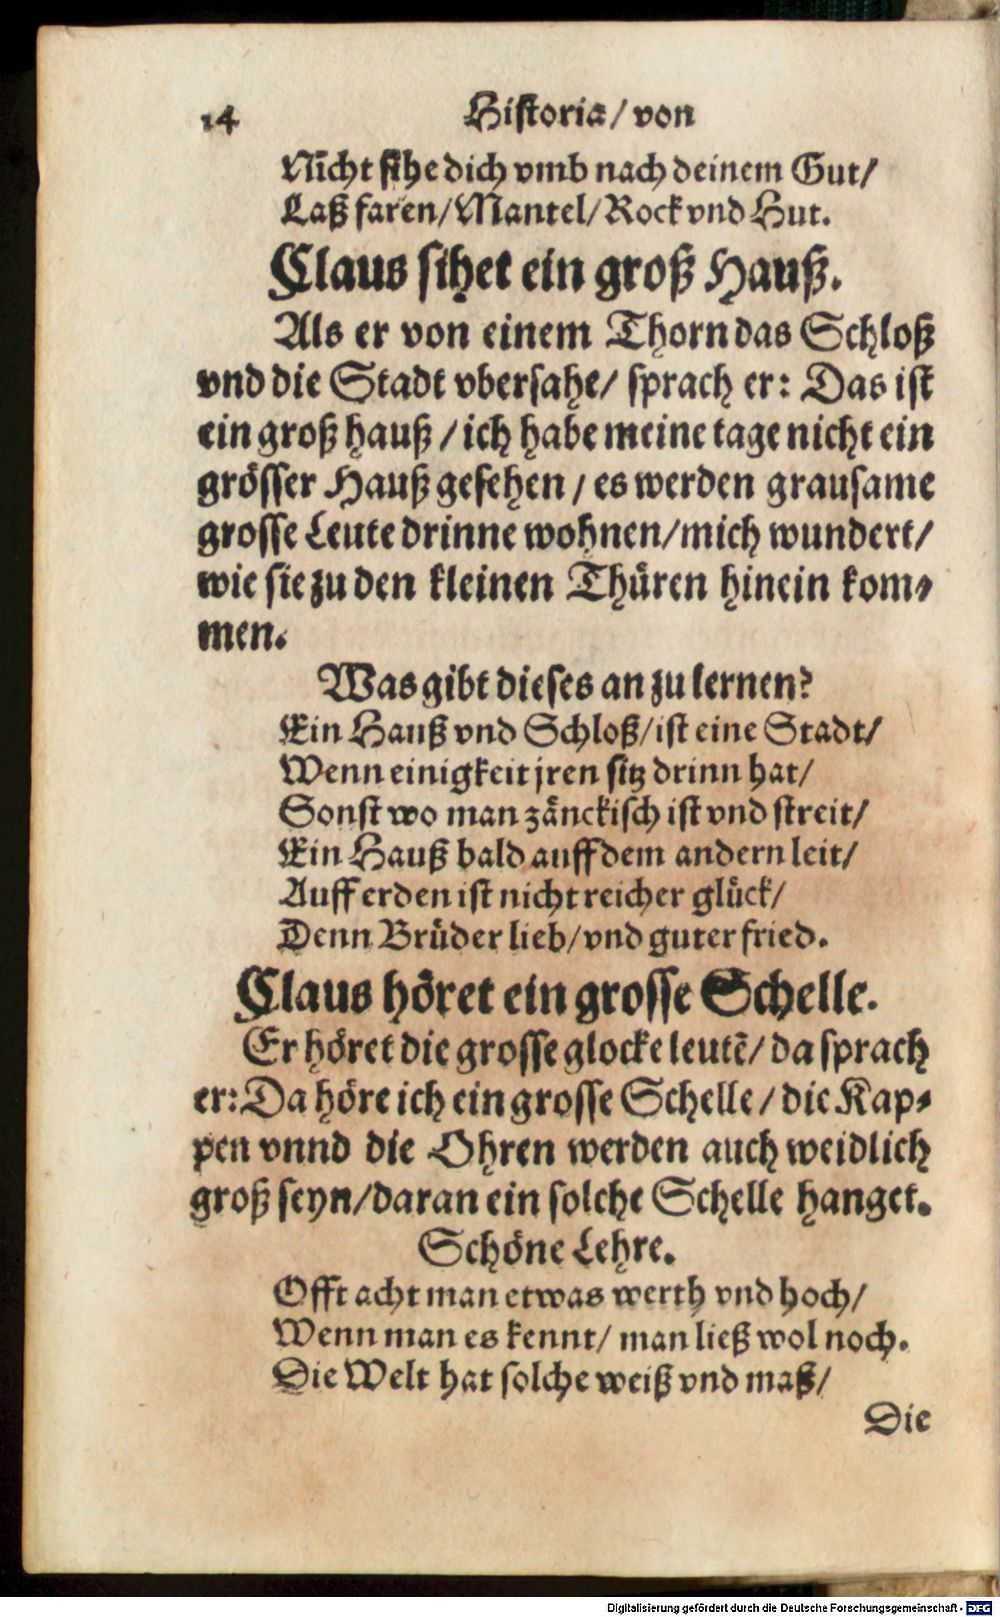 14 Historia/ von
Nicht sihe dich vmb nach deinem Gut/
Laß faren/ Mantel/ Rock vnd Hut.
Claus sihet ein groß Hauß.
Als er von einem Thorn das Schloß
vnd die Stadt vbersahe/ sprach er: Das ist
ein groß hauß / ich habe meine tage nicht ein
grösser Hauß gesehen / es werden grausame
grosse Leute drinne wohnen/ mich wundert/
wie sie zu den kleinen Thüren hinein kom-
men.
Was gibt dieses an zu lernen?
Ein Hauß vnd Schloß/ ist eine Stadt/
Wenn einigkeit jren sitz drinn hat/
Sonst wo man zänckisch ist vnd streit/
Ein Hauß bald auff dem andern leit/
Auff erden ist nicht reicher glück/
Denn Brüder lieb/ vnd guter fried.
Claus höret ein grosse Schelle.
Er höret die grosse glocke leutẽ/ da sprach
er: Da höre ich ein grosse Schelle / die Kap-
pen vnnd die Ohren werden auch weidlich
groß seyn/ daran ein solche Schelle hanget.
Schöne Lehre.
Offt acht man etwas werth vnd hoch/
Wenn man es kennt/ man ließ wol noch.
Die Welt hat solche weiß vnd maß/
Die
Digitalisierung gefördert durch die Deutsche Forschungsgemeinschaft - DFG